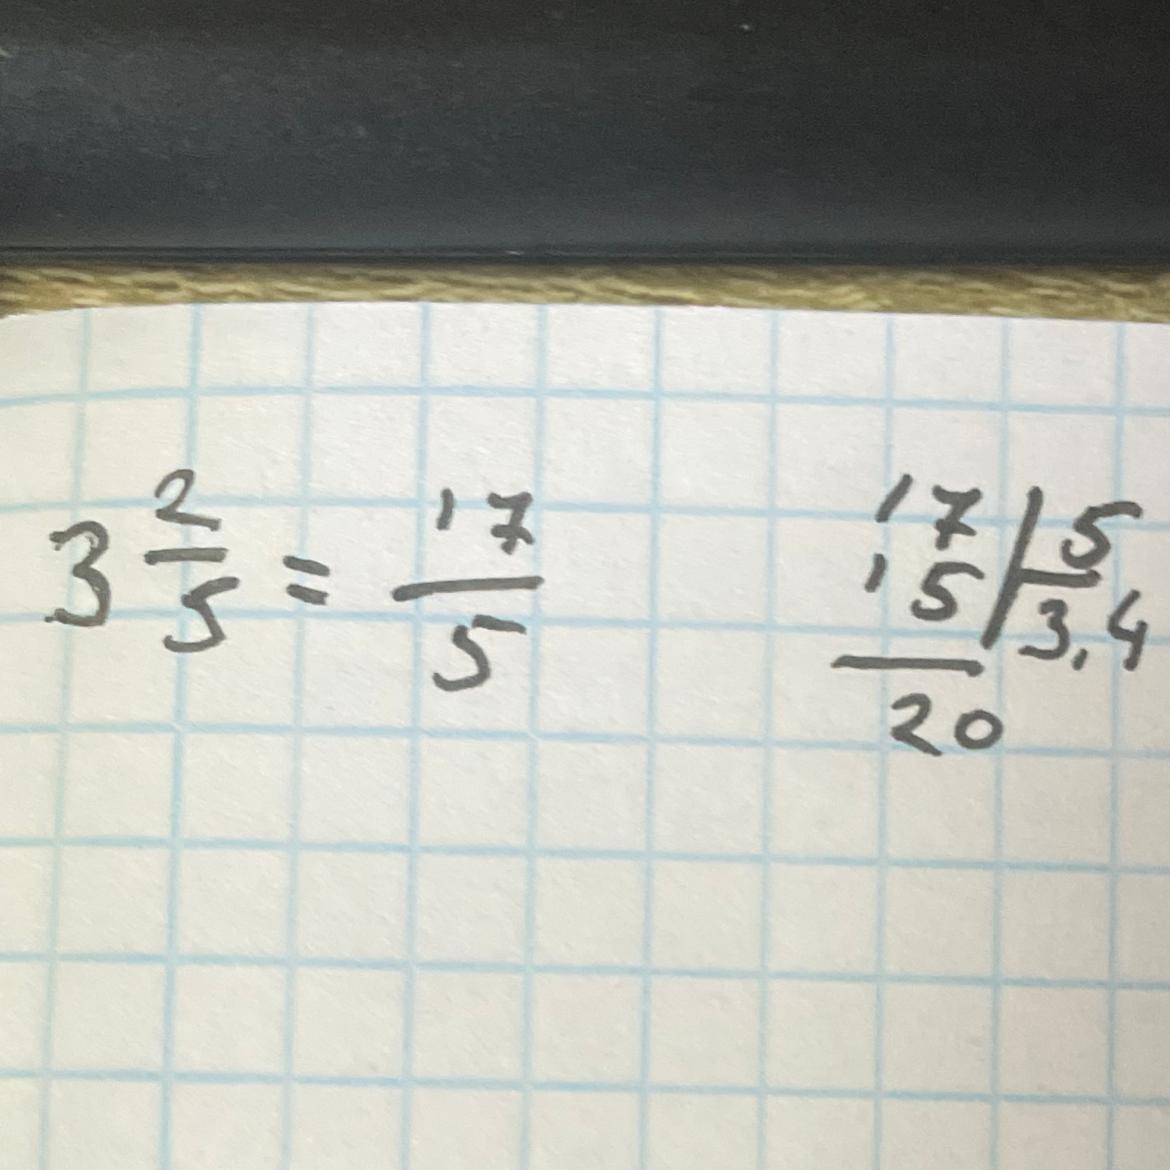 3 2/5 = 17/5
17 | 5
15 | 3,4
20